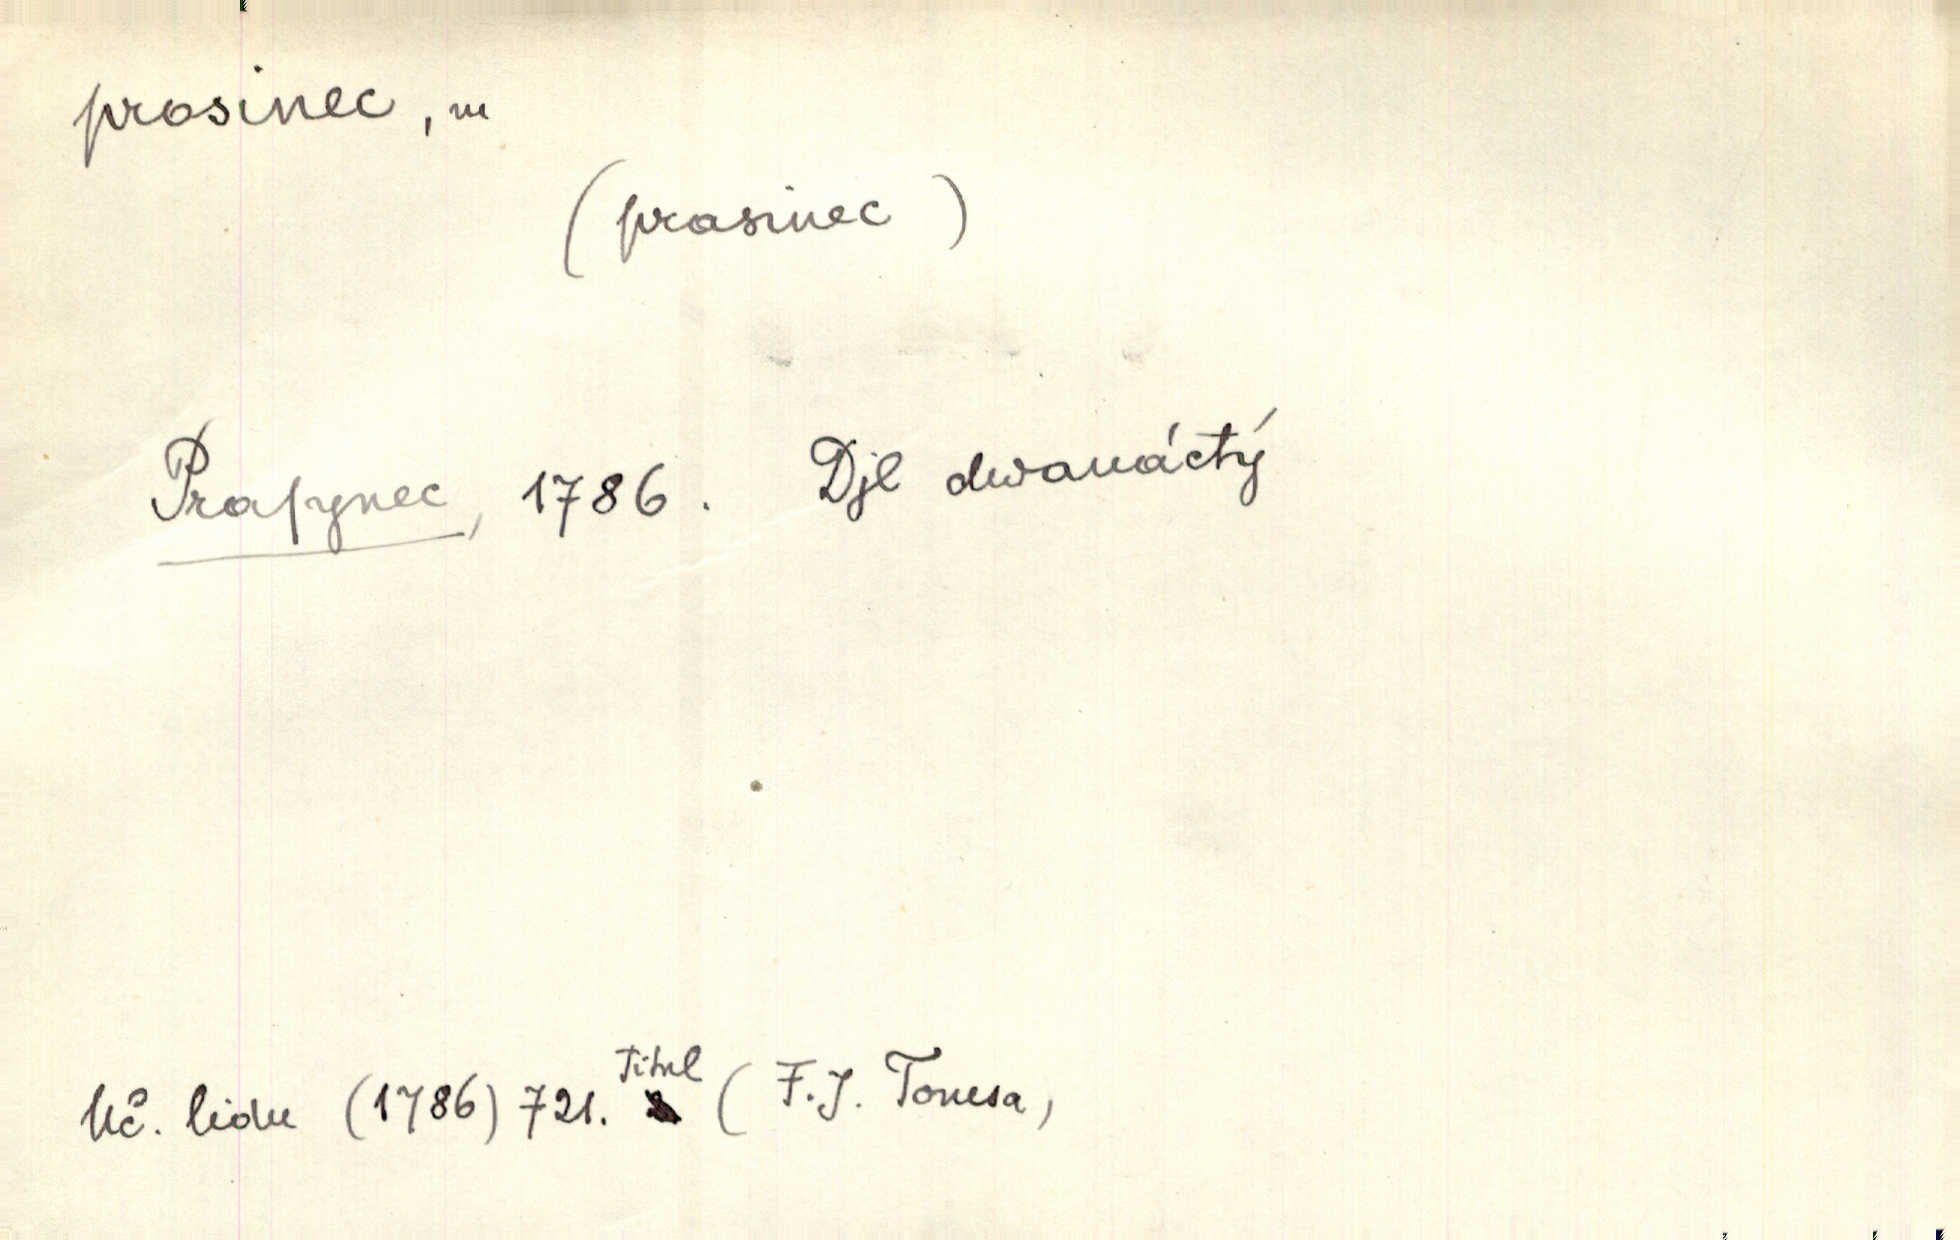 prosinec, m
(prasinec)
Praſynec, 1786. Djl dwanáctý
Titul
Uč. lidu (1786) 721. (F.J. Tomsa,